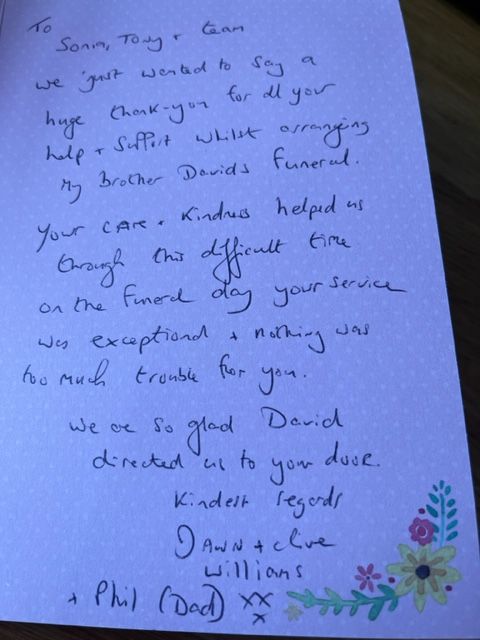 To
Sonia, Tony + team
we just wanted to say a
huge thank-you for all your
help + support whilst arranging
My Brother Davids Funeral.
Your CARE + Kindness helped us
through this difficult time
on the Funeral day your service
was exceptional + nothing was
too much trouble for you.
We are so glad David
directed us to your door.
Kindest regards
DAWN + Clive
Williams
+ Phil (Dad) xx
x